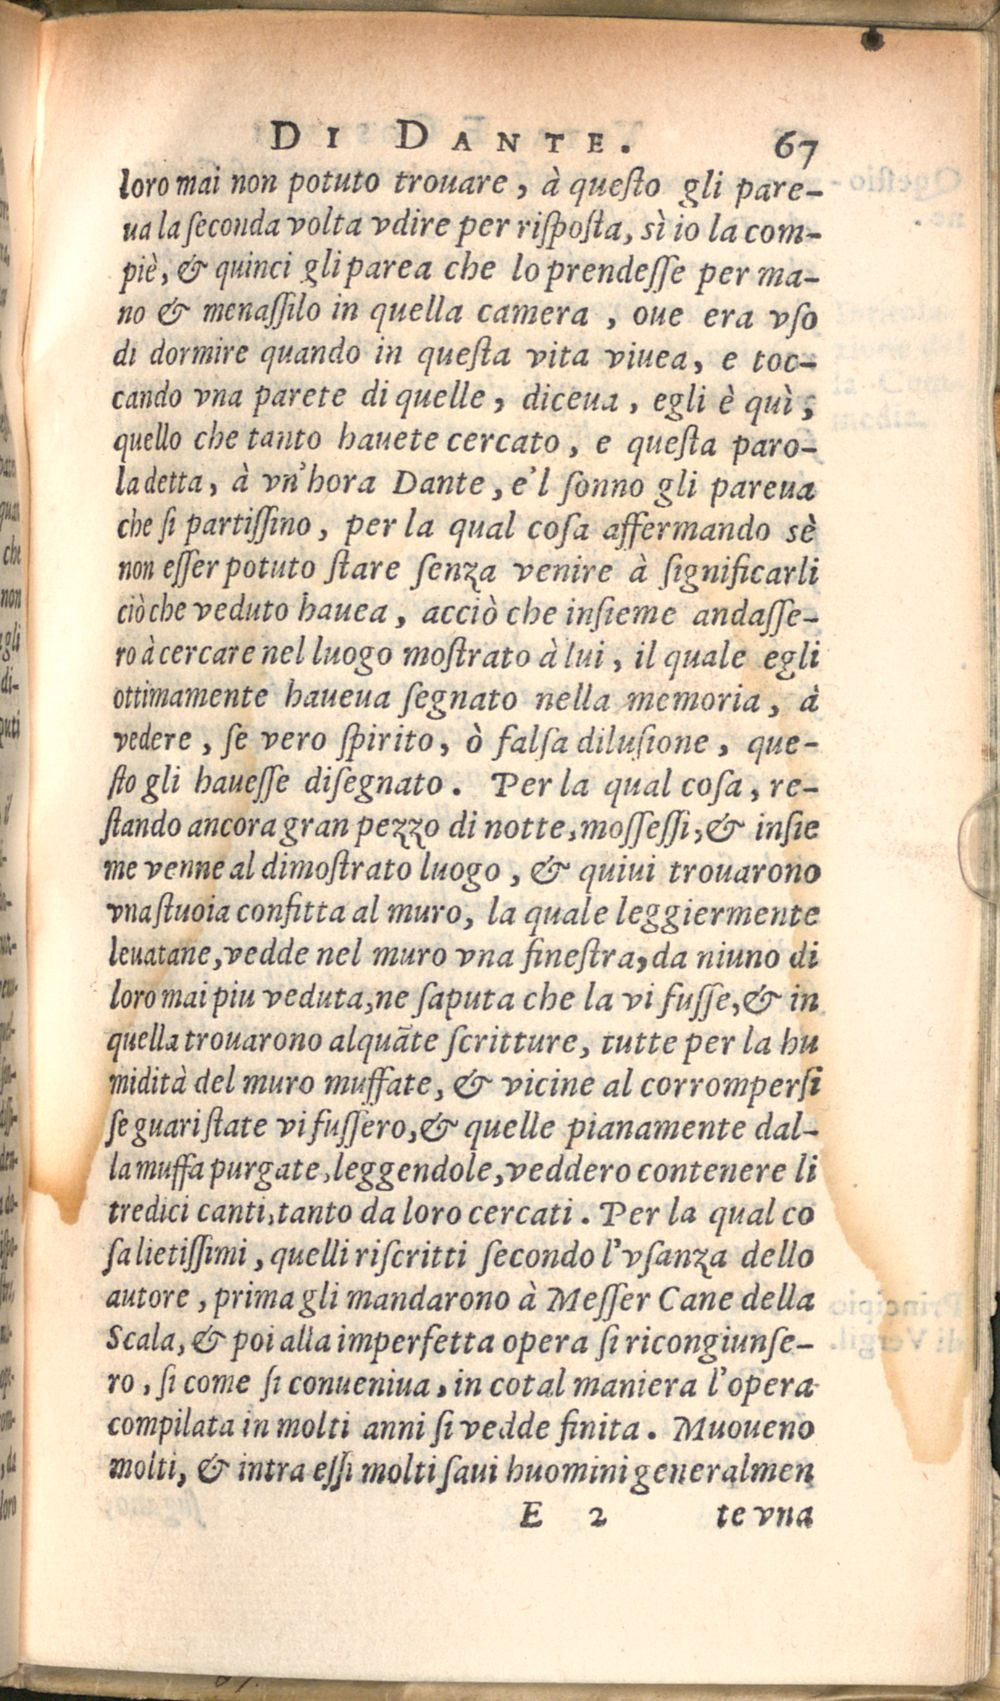 DI DANTE. 67
loro mai non potuto trouare, à queſto gli pare-
ua la ſeconda volta vdire per riſpoſta, sì io la com-
piè, & quinci gli parea che lo prendeſſe per ma-
no & menaſſilo in quella camera, oue era vſo
di dormire quando in queſta vita viuea, e toc-
cando vna parete di quelle, diceua, egli è quì,
quello che tanto hauete cercato, e queſta paro-
la detta, à vn'hora Dante, e'l ſonno gli pareua
che ſi partiſſino, per la qual coſa affermando sè
non eſſer potuto ſtare ſenza venire à ſignificarli
ciò che veduto hauea, acciò che inſieme andaſſe-
ro à cercare nel luogo moſtrato à lui, il quale egli
ottimamente haueua ſegnato nella memoria, à
vedere, ſe vero ſpirito, ò falſa diluſione, que-
ſto gli haueſſe diſegnato. Per la qual coſa, re-
ſtando ancora gran pezzo di notte, moſſeſſi, & inſie
me venne al dimoſtrato luogo, & quiui trouarono
vna ſtuoia confitta al muro, la quale leggiermente
leuatane, vedde nel muro vna fineſtra, da niuno di
loro mai piu veduta, ne ſaputa che la vi fuſſe, & in
quella trouarono alquāte ſcritture, tutte per la hu
midità del muro muffate, & vicine al corromperſi
ſe guari ſtate vi fuſſero, & quelle pianamente dal-
la muffa purgate, leggendole, veddero contenere li
tredici canti, tanto da loro cercati. Per la qual co
ſa lietiſſimi, quelli riſcritti ſecondo l'vſanza dello
autore, prima gli mandarono à Meſſer Cane della
Scala, & poi alla imperfetta opera ſi ricongiunſe-
ro, ſi come ſi conueniua, in cotal maniera l'opera
compilata in molti anni ſi vedde finita. Muoueno
molti, & intra eſſi molti ſaui huomini generalmen
E 2 te vna